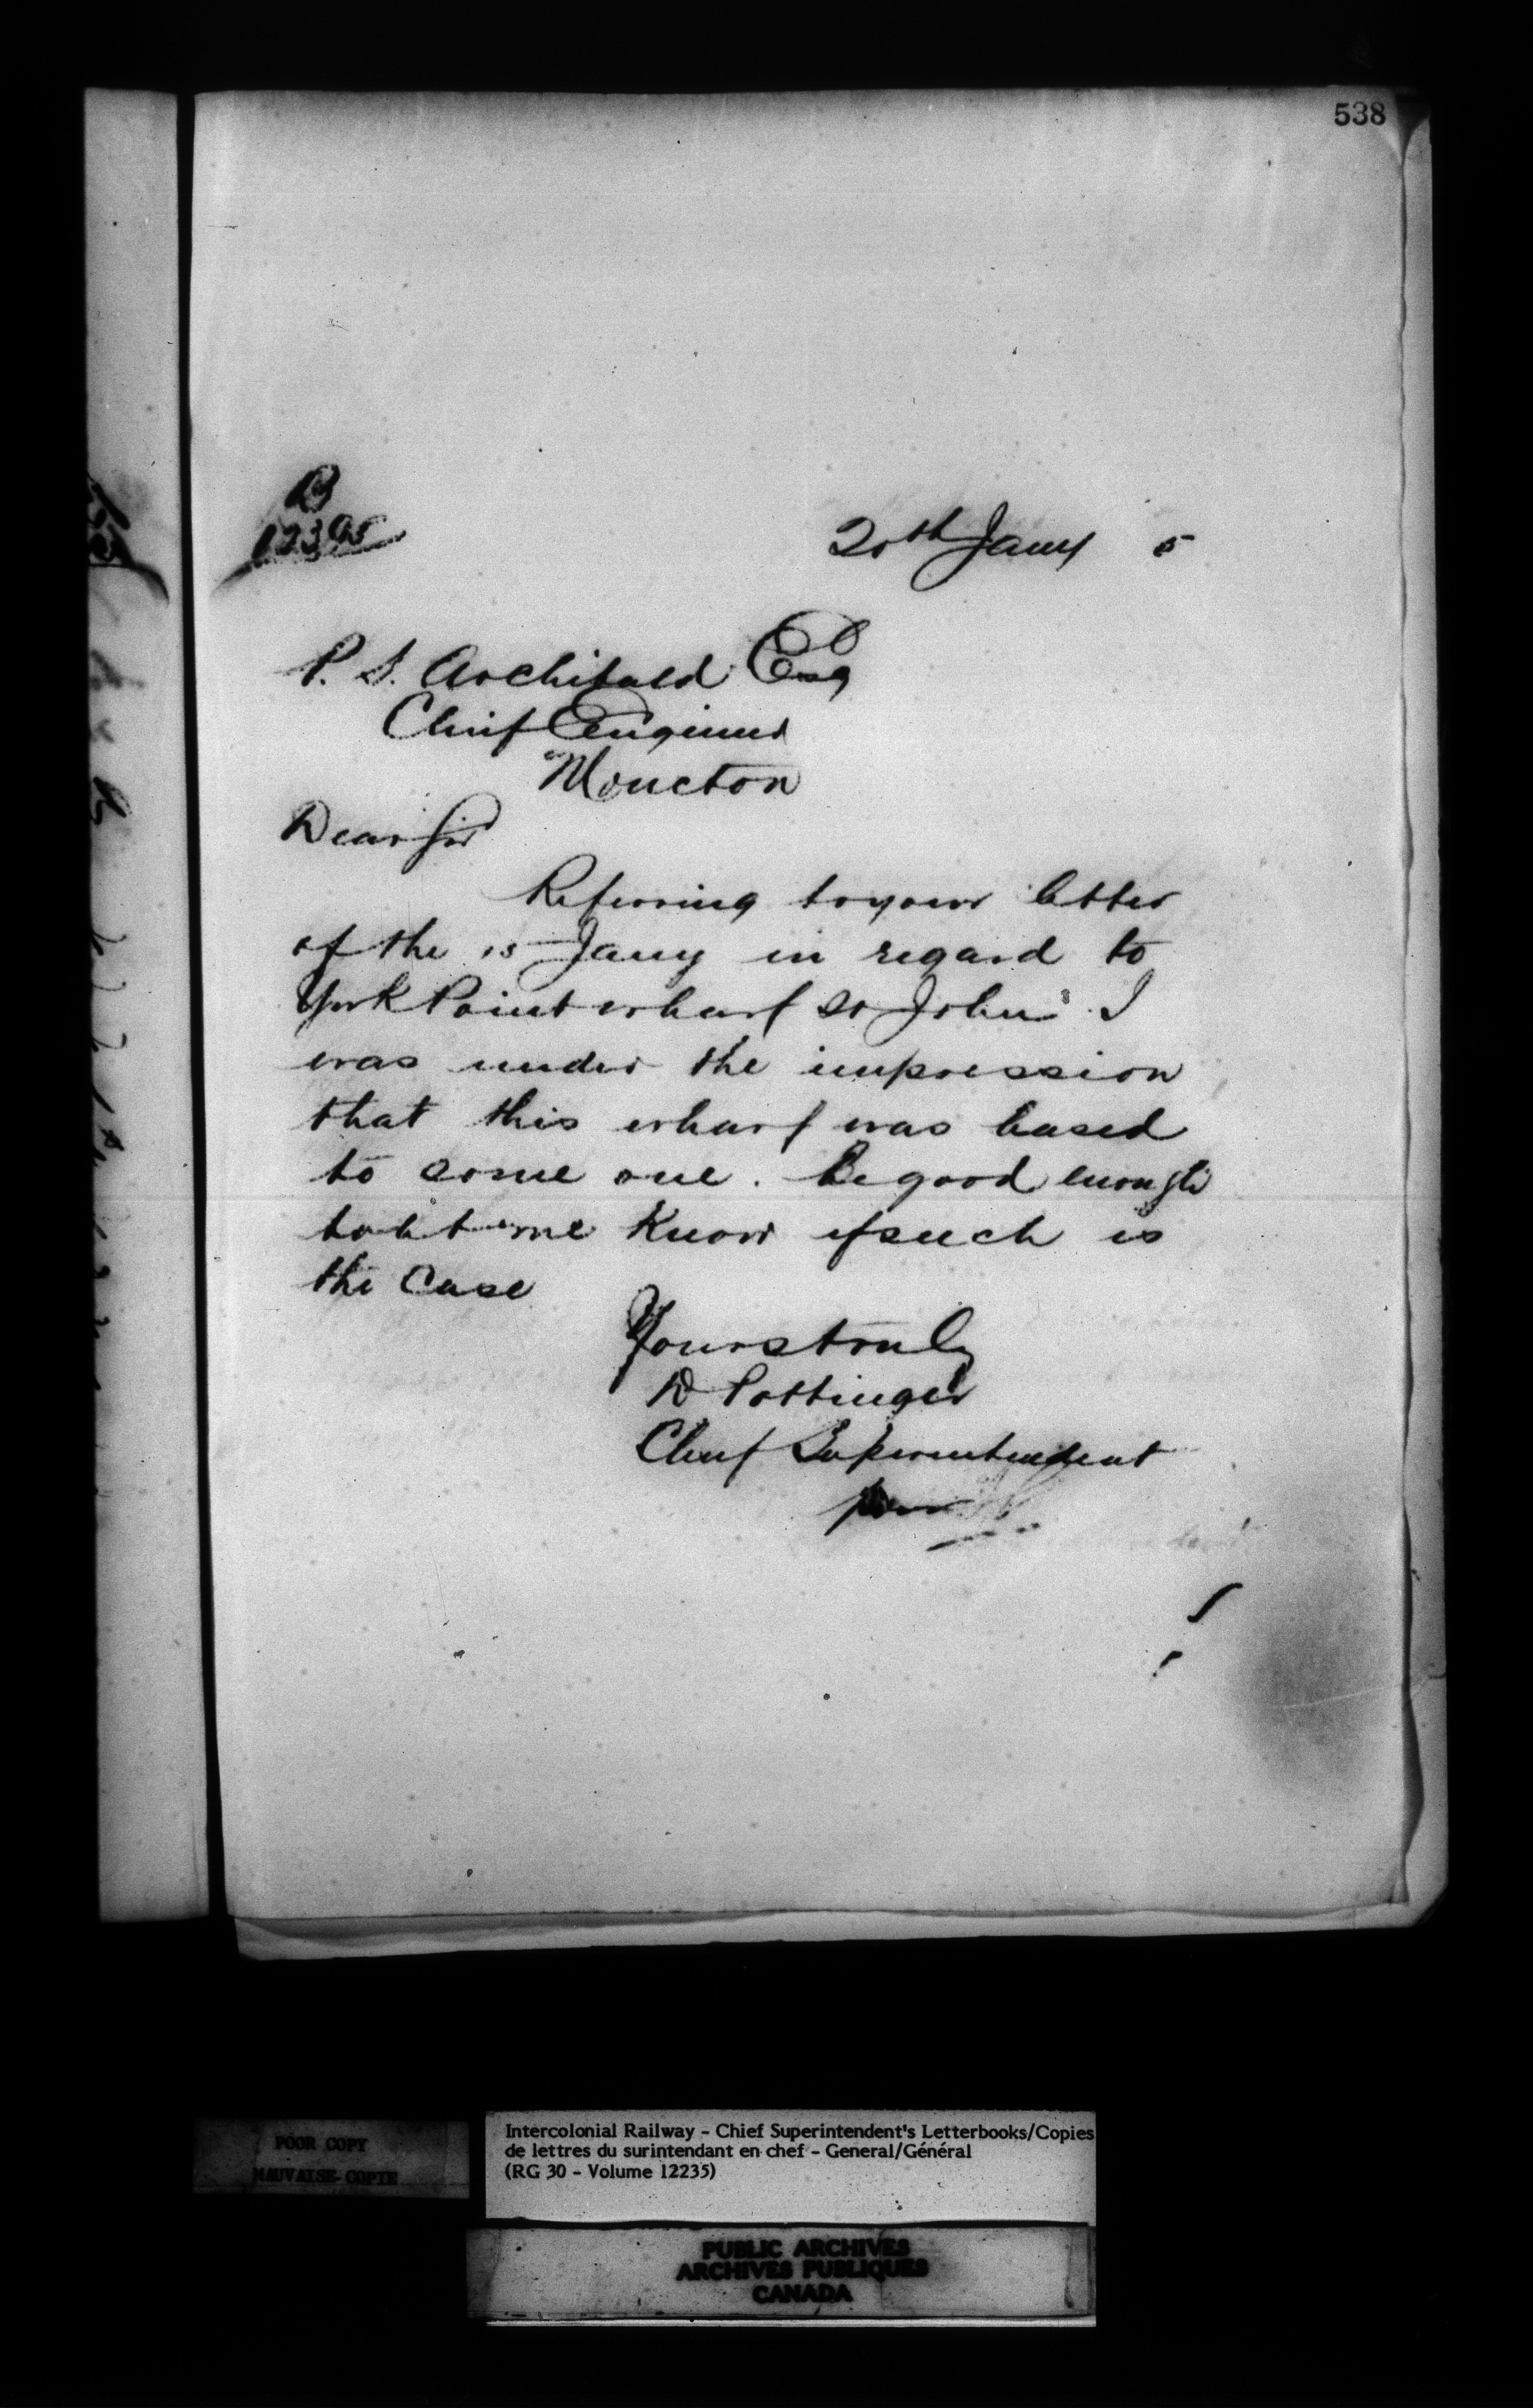 538
B
12395
20th Jany 5
P. S. Archibald Esq
Chief Engineer
Moncton
Dear Sir
Referring to your letter
of the 15 Jany in regard to
York Point wharf St John I
was under the impression
that this wharf was leased
to some one. Be good enough
to let me know if such is
the case
Yours truly
D Pottinger
Chief Superintendent
POOR COPY
MAUVAISE COPIE
Intercolonial Railway - Chief Superintendent's Letterbooks/Copies
de lettres du surintendant en chef - General/Général
(RG 30 - Volume 12235)
PUBLIC ARCHIVES
ARCHIVES PUBLIQUES
CANADA